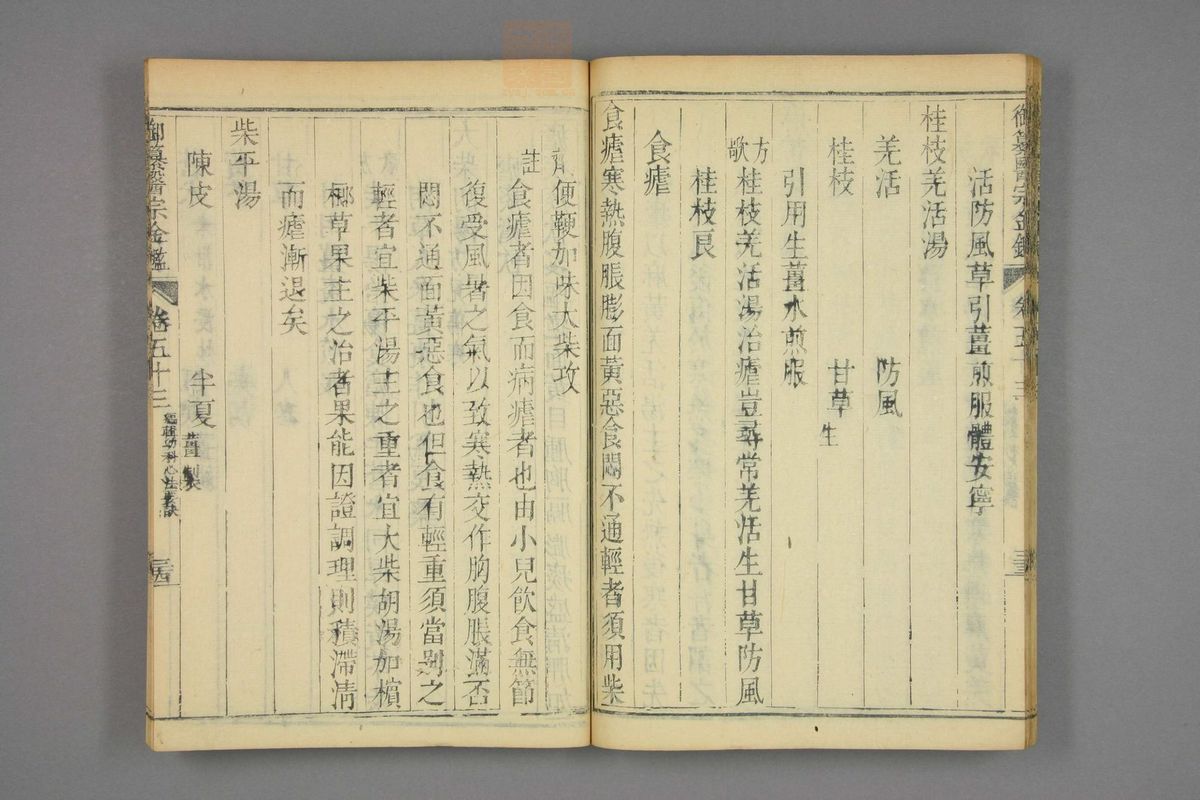 御纂醫宗金鑑 卷五十三 三
活防風草引薑煎服體安寧
桂枝羌活湯
羌活 防風
桂枝 甘草生
引用生薑水煎服
方歌 桂枝羌活湯治瘧豈尋常羌活生甘草防風
桂枝良
食瘧
食瘧寒熱腹脹膨面黃惡食悶不通輕者須用柴
便鞕加味大柴攻
註 食瘧者因食而病瘧者也由小兒飲食無節
復受風暑之氣以致寒熱交作胸腹脹滿否
悶不通面黃惡食也但食有輕重須當别之
輕者宜柴平湯主之重者宜大柴胡湯加檳
榔草果主之治者果能因證調理則積滯清
而瘧漸退矣
柴平湯
陳皮 半夏薑製
御纂醫宗金鑑 卷五十三 編輯幼科心法要訣